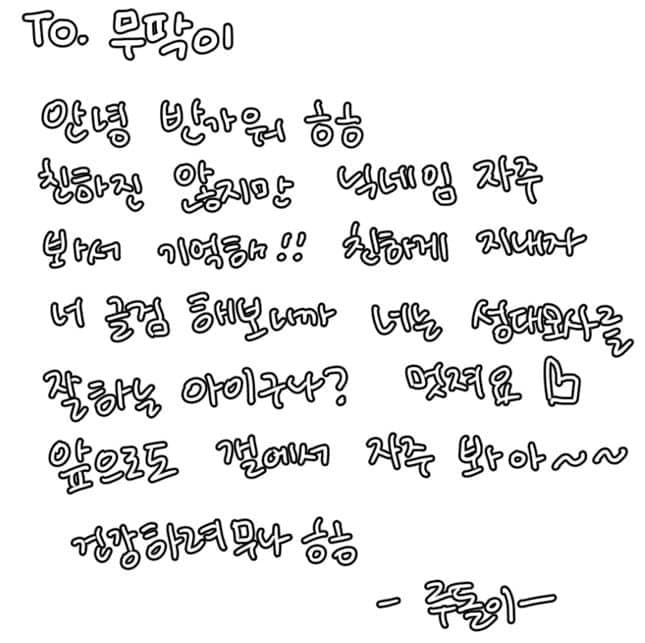 To. 무딱이
안녕 반가워 흐흐
친하진 않지만 닉네임 자주
봐서 기억해!! 친하게 지내자
너 글검 해보니까 너는 성대모사를
잘하는 아이구나? 멋져요
앞으로도 갤에서 자주 봐아~~
건강하려무나 흐흐
- 주돌이 -